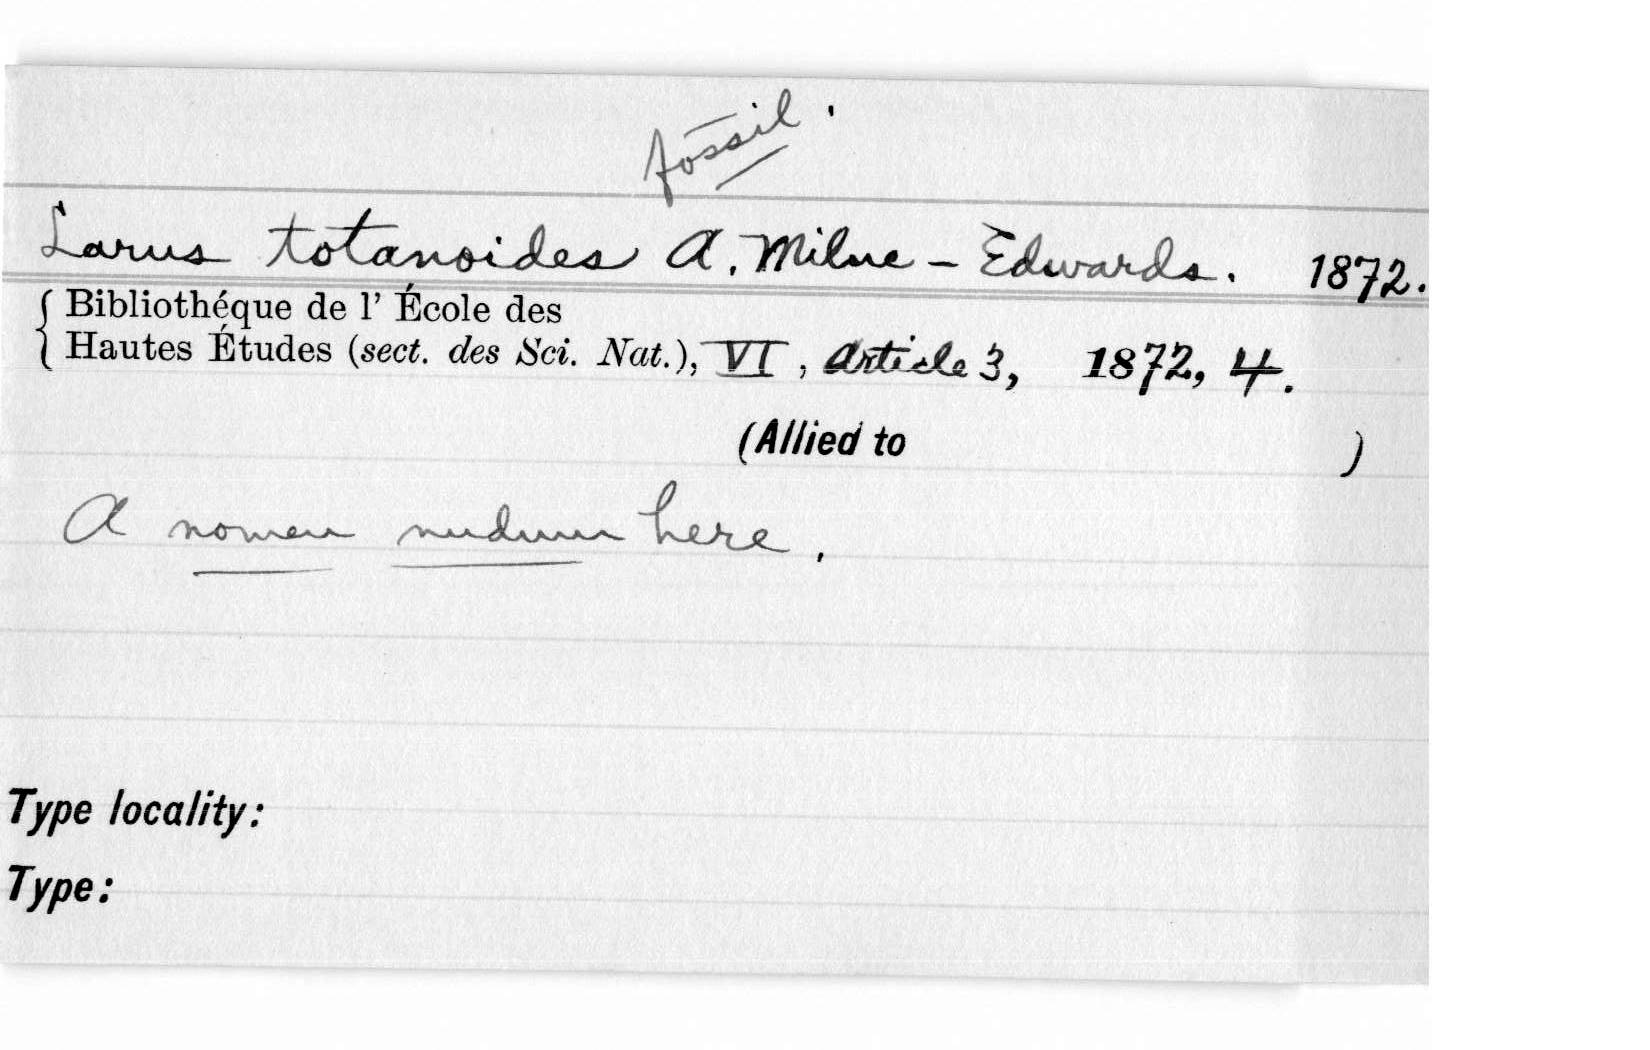 fossil.
Larus totanoides A. Milne-Edwards. 1872.
Bibliothéque de l' École des
Hautes Études (sect. des Sci. Nat.), VI, Article 3, 1872, 4.
(Allied to )
A nomen nudum here.
Type locality:
Type: